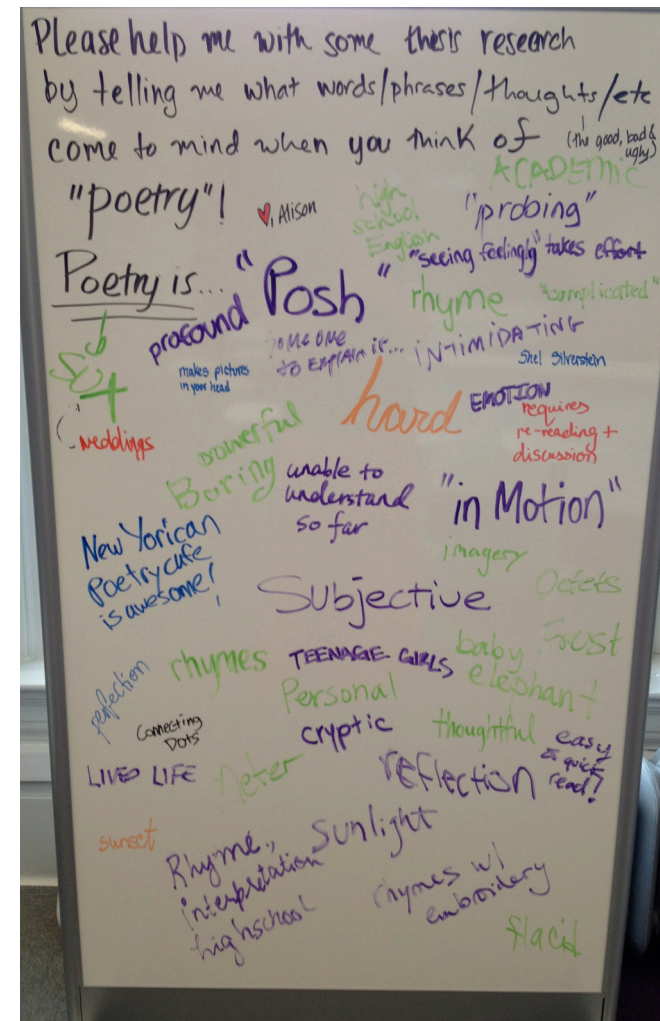 Please help me with some thesis research
by telling me what words/phrases/thoughts/etc
(the good, bad &
ugly)
come to mind when you think of
"poetry"!
♥, Alison
ACADEMIC
high
school
English
"probing"
"seeing feelingly"
takes effort
Poetry is...
"Posh"
rhyme
"complicated"
profound
SOMEONE
TO EXPLAIN IT...
INTIMIDATING
Shel Silverstein
makes pictures
in your head
hard
EMOTION
requires
re-reading +
discussion
weddings
powerful
Boring
unable to
understand
so far
"in Motion"
New Yorican
Poetry cafe
is awesome!
imagery
Octets
Subjective
Frost
rhymes
TEENAGE GIRLS
baby
elephant
perfection
Personal
Connecting
Dots
cryptic
thoughtful
easy
& quick
read!
LIVED LIFE
Meter
reflection
sunset
Sunlight
Rhyme,
interpretation
highschool
rhymes w/
embroidery
flacid